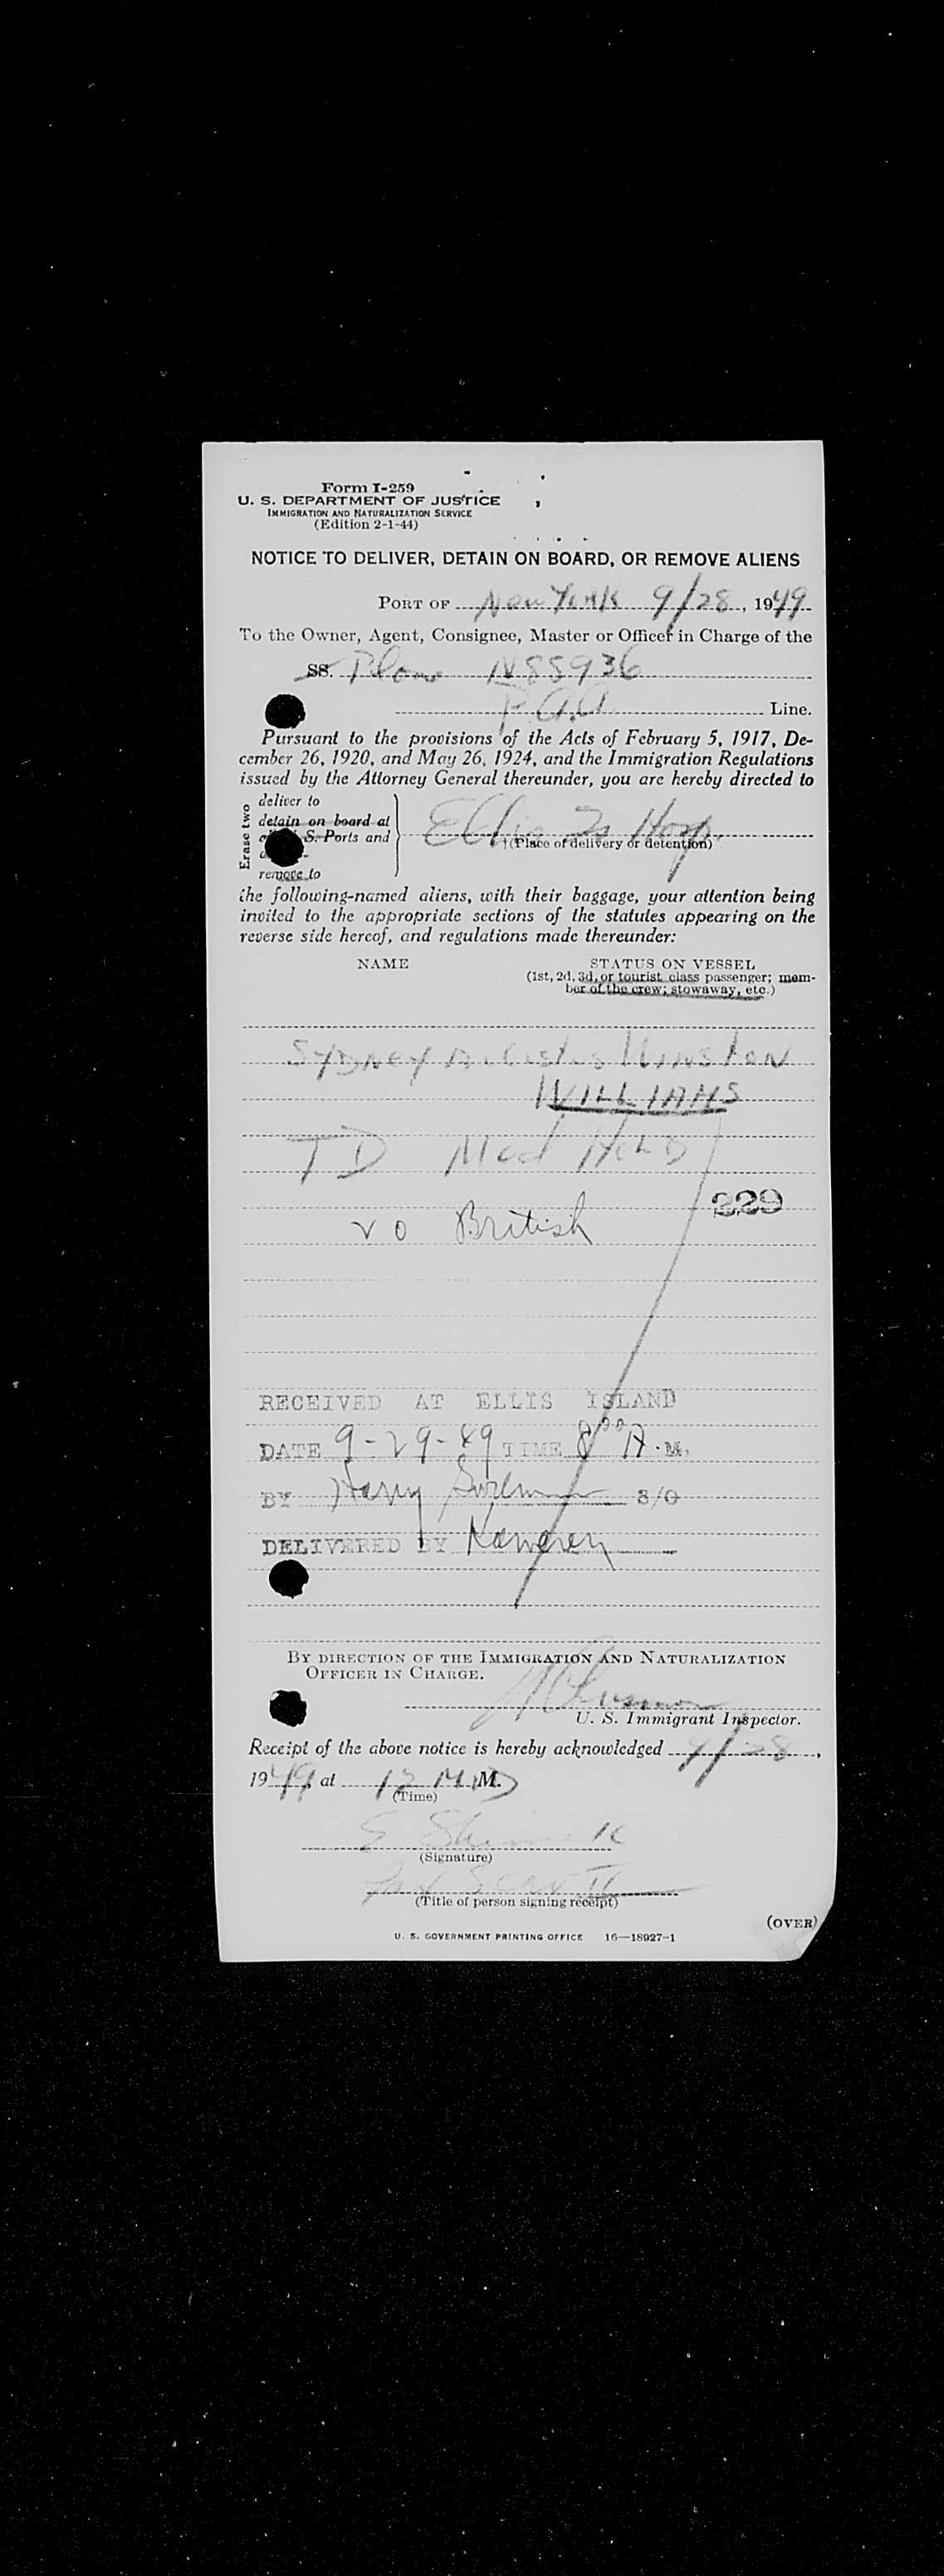 Form I-259
U. S. DEPARTMENT OF JUSTICE
IMMIGRATION AND NATURALIZATION SERVICE
(Edition 2-1-44)
NOTICE TO DELIVER, DETAIN ON BOARD, OR REMOVE ALIENS
PORT OF New York 9/28, 1949
To the Owner, Agent, Consignee, Master or Officer in Charge of the
SS. Plane N88936
P.A.A Line.
Pursuant to the provisions of the Acts of February 5, 1917, De-
cember 26, 1920, and May 26, 1924, and the Immigration Regulations
issued by the Attorney General thereunder, you are hereby directed to
Erase two
deliver to
detain on board at
S. Ports and
remove to
Ellis Is Hosp.
†(Place of delivery or detention)
the following-named aliens, with their baggage, your attention being
invited to the appropriate sections of the statutes appearing on the
reverse side hereof, and regulations made thereunder:
NAME STATUS ON VESSEL
(1st, 2d, 3d, or tourist class passenger; mem-
ber of the crew; stowaway, etc.)
SYDNEY WINSTON
WILLIAMS
TD Med HOLD
229
20 British
RECEIVED AT ELLIS ISLAND
DATE 9-29-49 TIME 8 00 A.M.
BY Harry S/O
DELIVERED BY
BY DIRECTION OF THE IMMIGRATION AND NATURALIZATION
OFFICER IN CHARGE.
U. S. Immigrant Inspector.
Receipt of the above notice is hereby acknowledged 9/28,
1949, at 12 MID M.
(Time)
(Signature)
(Title of person signing receipt)
(OVER)
U. S. GOVERNMENT PRINTING OFFICE 16—18927-1